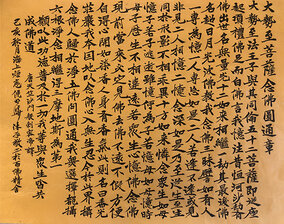 大勢至菩薩念佛圓通章
大勢至法王子與其同倫五十二菩薩即從座
起頂禮佛足而白佛言我憶往昔恆河沙劫
有佛出世名無量光十二如來相繼一劫其最後佛
名超日月光彼佛教我念佛三昧譬如有人一
專為憶一人專忘如是二人若逢不逢或見
非見二人相憶二憶念深如是乃至從生至生
同於形影不相乖異十方如來憐念眾生如母
憶子若子逃逝雖憶何為子若憶母如母憶時
母子歷生不相違遠若眾生心憶佛念佛
現前當來必定見佛去佛不遠不假方便
自得心開如染香人身有香氣此則名曰香光
莊嚴我本因地以念佛心入無生忍今於此界攝
念佛人歸於淨土佛問圓通我無選擇都攝
六根淨念相繼得三摩地斯為第一
願以此功德普及於一切我等與眾生皆共
成佛道
唐天竺沙門般剌密帝譯
己亥